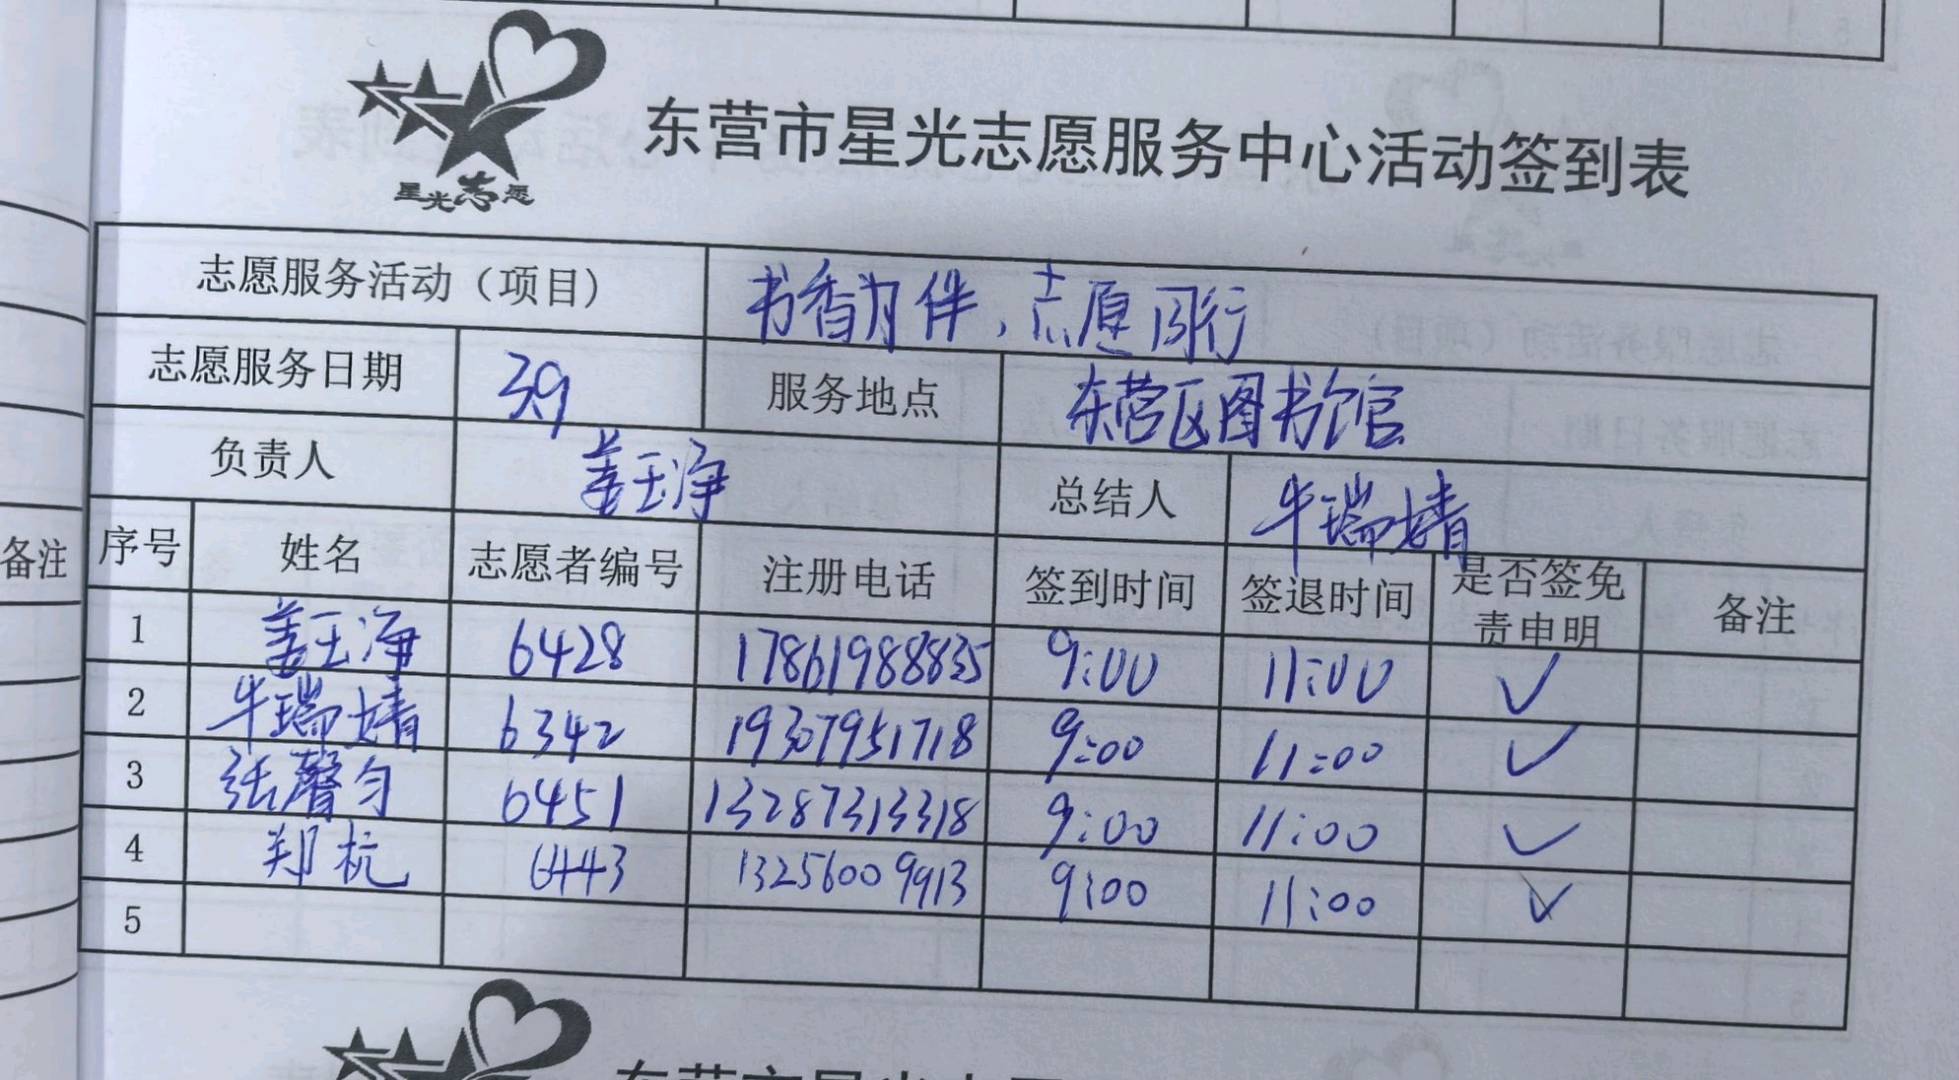 星光志愿
东营市星光志愿服务中心活动签到表
志愿服务活动（项目） 书香为伴，志愿同行
志愿服务日期 3.9 服务地点 东营区图书馆
负责人 姜玉海 总结人 牛瑞婧
备注
序号 姓名 志愿者编号 注册电话 签到时间 签退时间 是否签免责申明 备注
1 姜玉海 6428 17861988835 9:00 11:00 ✓
2 牛瑞婧 6342 19307951718 9:00 11:00 ✓
3 张馨匀 6451 13287313318 9:00 11:00 ✓
4 郑杭 6443 13256009913 9:00 11:00 ✓
5